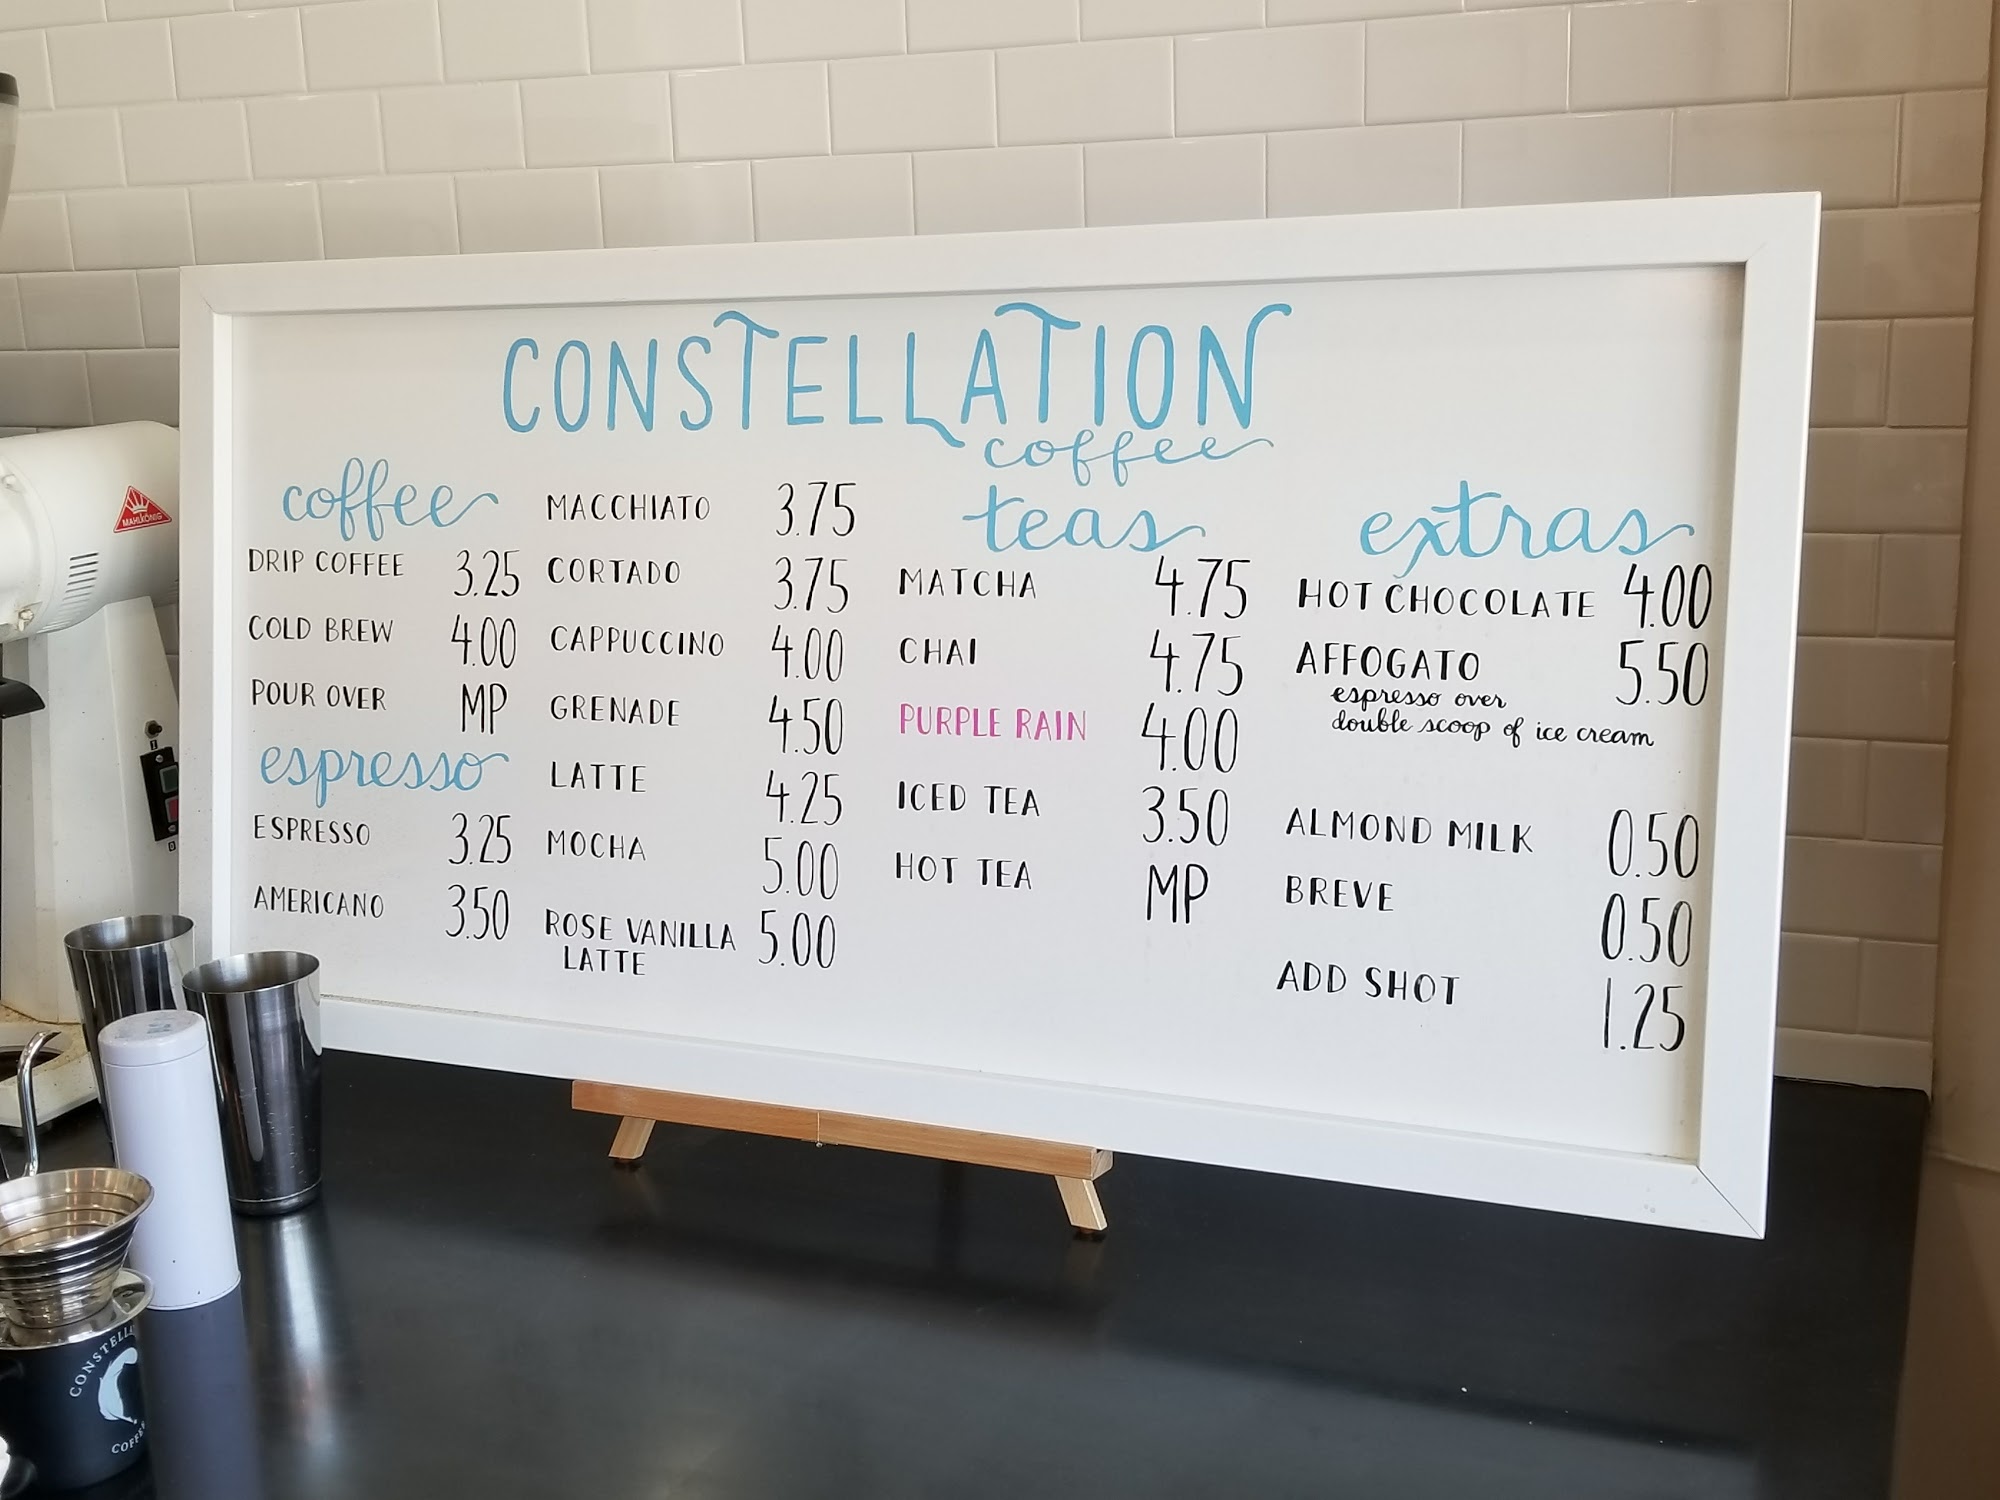 CONSTELLATION
coffee
coffee
DRIP COFFEE 3.25
COLD BREW 4.00
POUR OVER MP
espresso
ESPRESSO 3.25
AMERICANO 3.50
MACCHIATO 3.75
CORTADO 3.75
CAPPUCCINO 4.00
GRENADE 4.50
LATTE 4.25
MOCHA 5.00
ROSE VANILLA 5.00
LATTE
teas
MATCHA 4.75
CHAI 4.75
PURPLE RAIN 4.00
ICED TEA 3.50
HOT TEA MP
extras
HOT CHOCOLATE 4.00
AFFOGATO 5.50
espresso over
double scoop of ice cream
ALMOND MILK 0.50
BREVE 0.50
ADD SHOT 1.25
MAHLKÖNIG